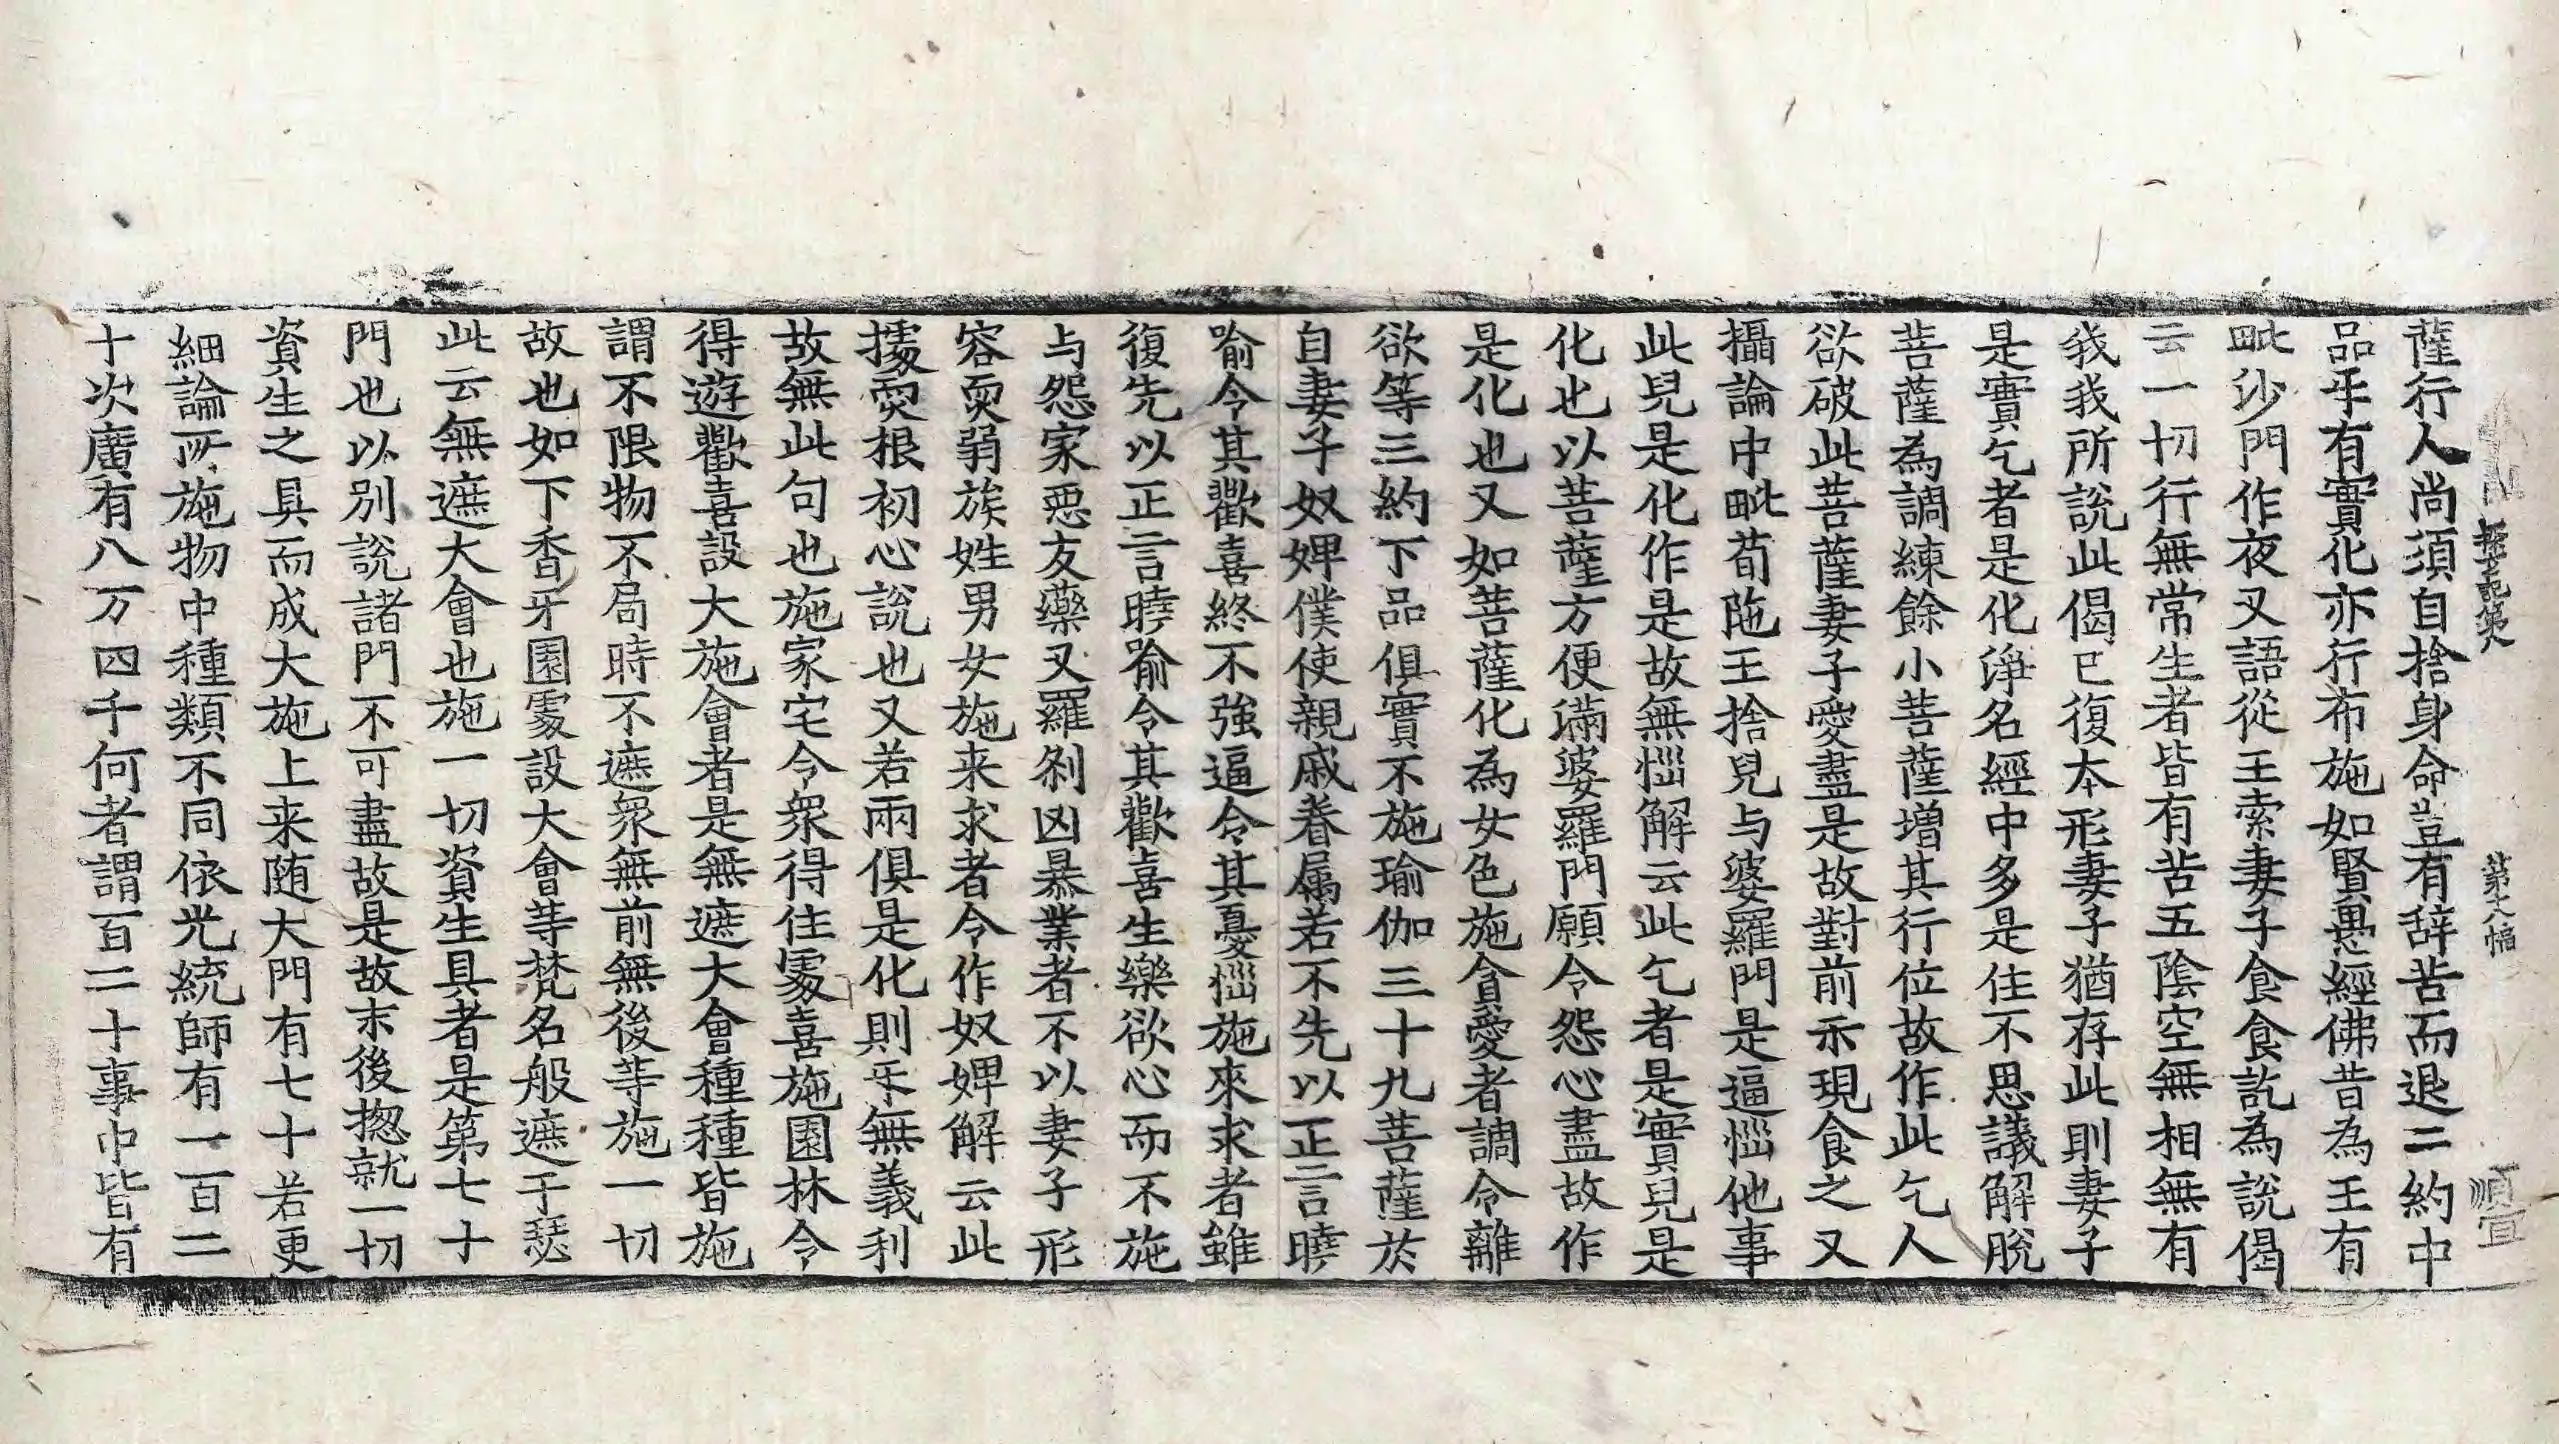 薩行人尚須自捨身命豈有辞苦而退二約中
品乎有實化亦行布施如賢愚經佛昔為王有
毗沙門作夜叉語從王索妻子食食訖為說偈
云一切行無常生者皆有苦五陰空無相無有
我我所說此偈已復本形妻子猶存此則妻子
是實乞者是化淨名經中多是住不思議解脫
菩薩為調練餘小菩薩增其行位故作此乞人
欲破此菩薩妻子愛盡是故對前示現食之又
攝論中毗荀陁王捨兒与婆羅門是逼惱他事
此兒是化作是故無惱解云此乞者是實兒是
化也以菩薩方便滿婆羅門願令怨心盡故作
是化也又如菩薩化為女色施貪愛者調令離
欲等三約下品俱實不施瑜伽三十九菩薩於
自妻子奴婢僕使親戚眷属若不先以正言曉
喻令其歡喜終不強逼令其憂惱施來求者雖
復先以正言曉喻令其歡喜生樂欲心而不施
与怨家惡友藥叉羅剎凶暴業者不以妻子形
容耎弱族姓男女施来求者令作奴婢解云此
據耎根初心說也又若兩俱是化則乎無義利
故無此句也施家宅令衆得住處喜施園林令
得遊歡喜設大施會者是無遮大會種種皆施
謂不限物不局時不遮衆無前無後等施一切
故也如下香牙園處設大會等梵名般遮于瑟
此云無遮大會也施一切資生具者是第七十
門也以別說諸門不可盡故是故末後捴就一切
資生之具而成大施上来随大門有七十若更
細論所施物中種類不同依光統師有一百二
十次廣有八万四千何者謂百二十事中皆有